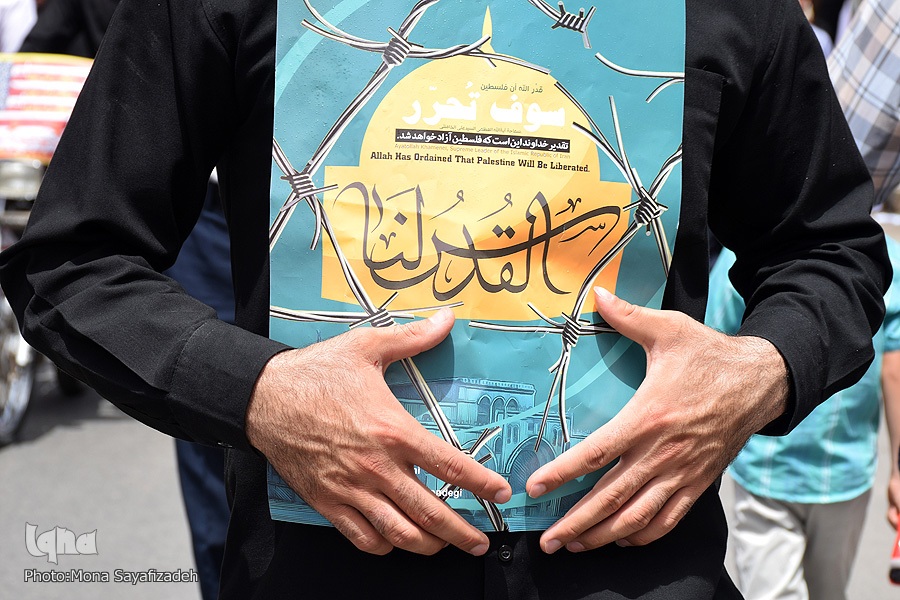 قدّر الله أن فلسطين
سوف تُحرّر
تقدیر خداوند این است که فلسطین آزاد خواهد شد.
Ayatollah Khamenei, Supreme Leader of the Islamic Republic of Iran
Allah Has Ordained That Palestine Will Be Liberated.
القدس لنا
Iqna
Photo:Mona Sayafizadeh